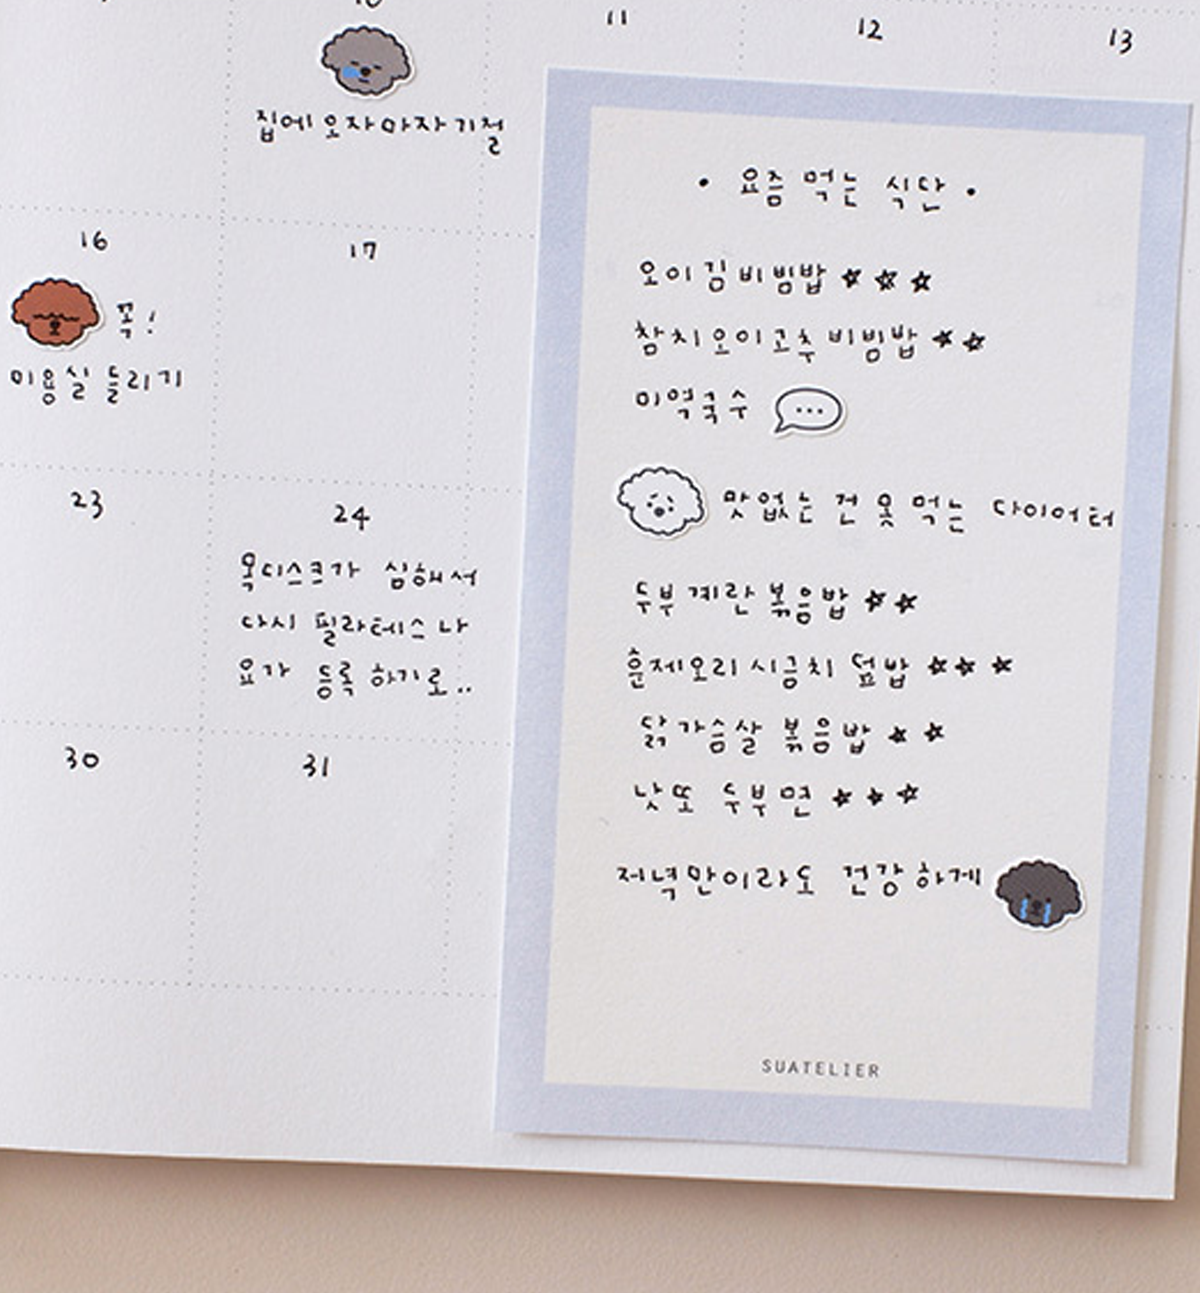 10
11
12
13
집에 오자마자 기절
16
17
꼭!
미용실 들리기
23
24
목디스크가 심해서
다시 필라테스나
요가 등록하기로..
30
31
• 요즘 먹는 식단 •
오이김비빔밥 ★★★
참치오이고추비빔밥 ★★
미역국수 ...
맛없는건 못먹는 다이어터
두부계란볶음밥 ★★
훈제오리시금치 덮밥 ★★★
닭가슴살 볶음밥 ★★
낫또 두부면 ★★★
저녁만이라도 건강하게
SUATELIER